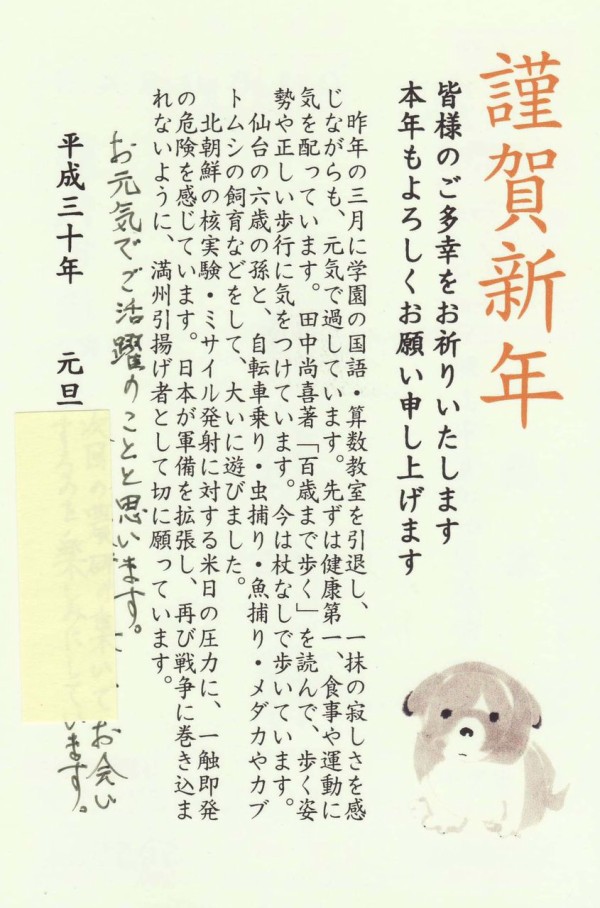 謹賀新年
皆様のご多幸をお祈りいたします
本年もよろしくお願い申し上げます
昨年の三月に学園の国語・算数教室を引退し、一抹の寂しさを感
じながらも、元気で過しています。先ずは健康第一、食事や運動に
気を配っています。田中尚喜著「百歳まで歩く」を読んで、歩く姿
勢や正しい歩行に気をつけています。今は杖なしで歩いています。
仙台の六歳の孫と、自転車乗り・虫捕り・魚捕り・メダカやカブ
トムシの飼育などをして、大いに遊びました。
北朝鮮の核実験・ミサイル発射に対する米日の圧力に、一触即発
の危険を感じています。日本が軍備を拡張し、再び戦争に巻き込ま
れないように、満州引揚げ者として切に願っています。
お元気でご活躍のことと思います。
お会い
います。
平成三十年 元旦